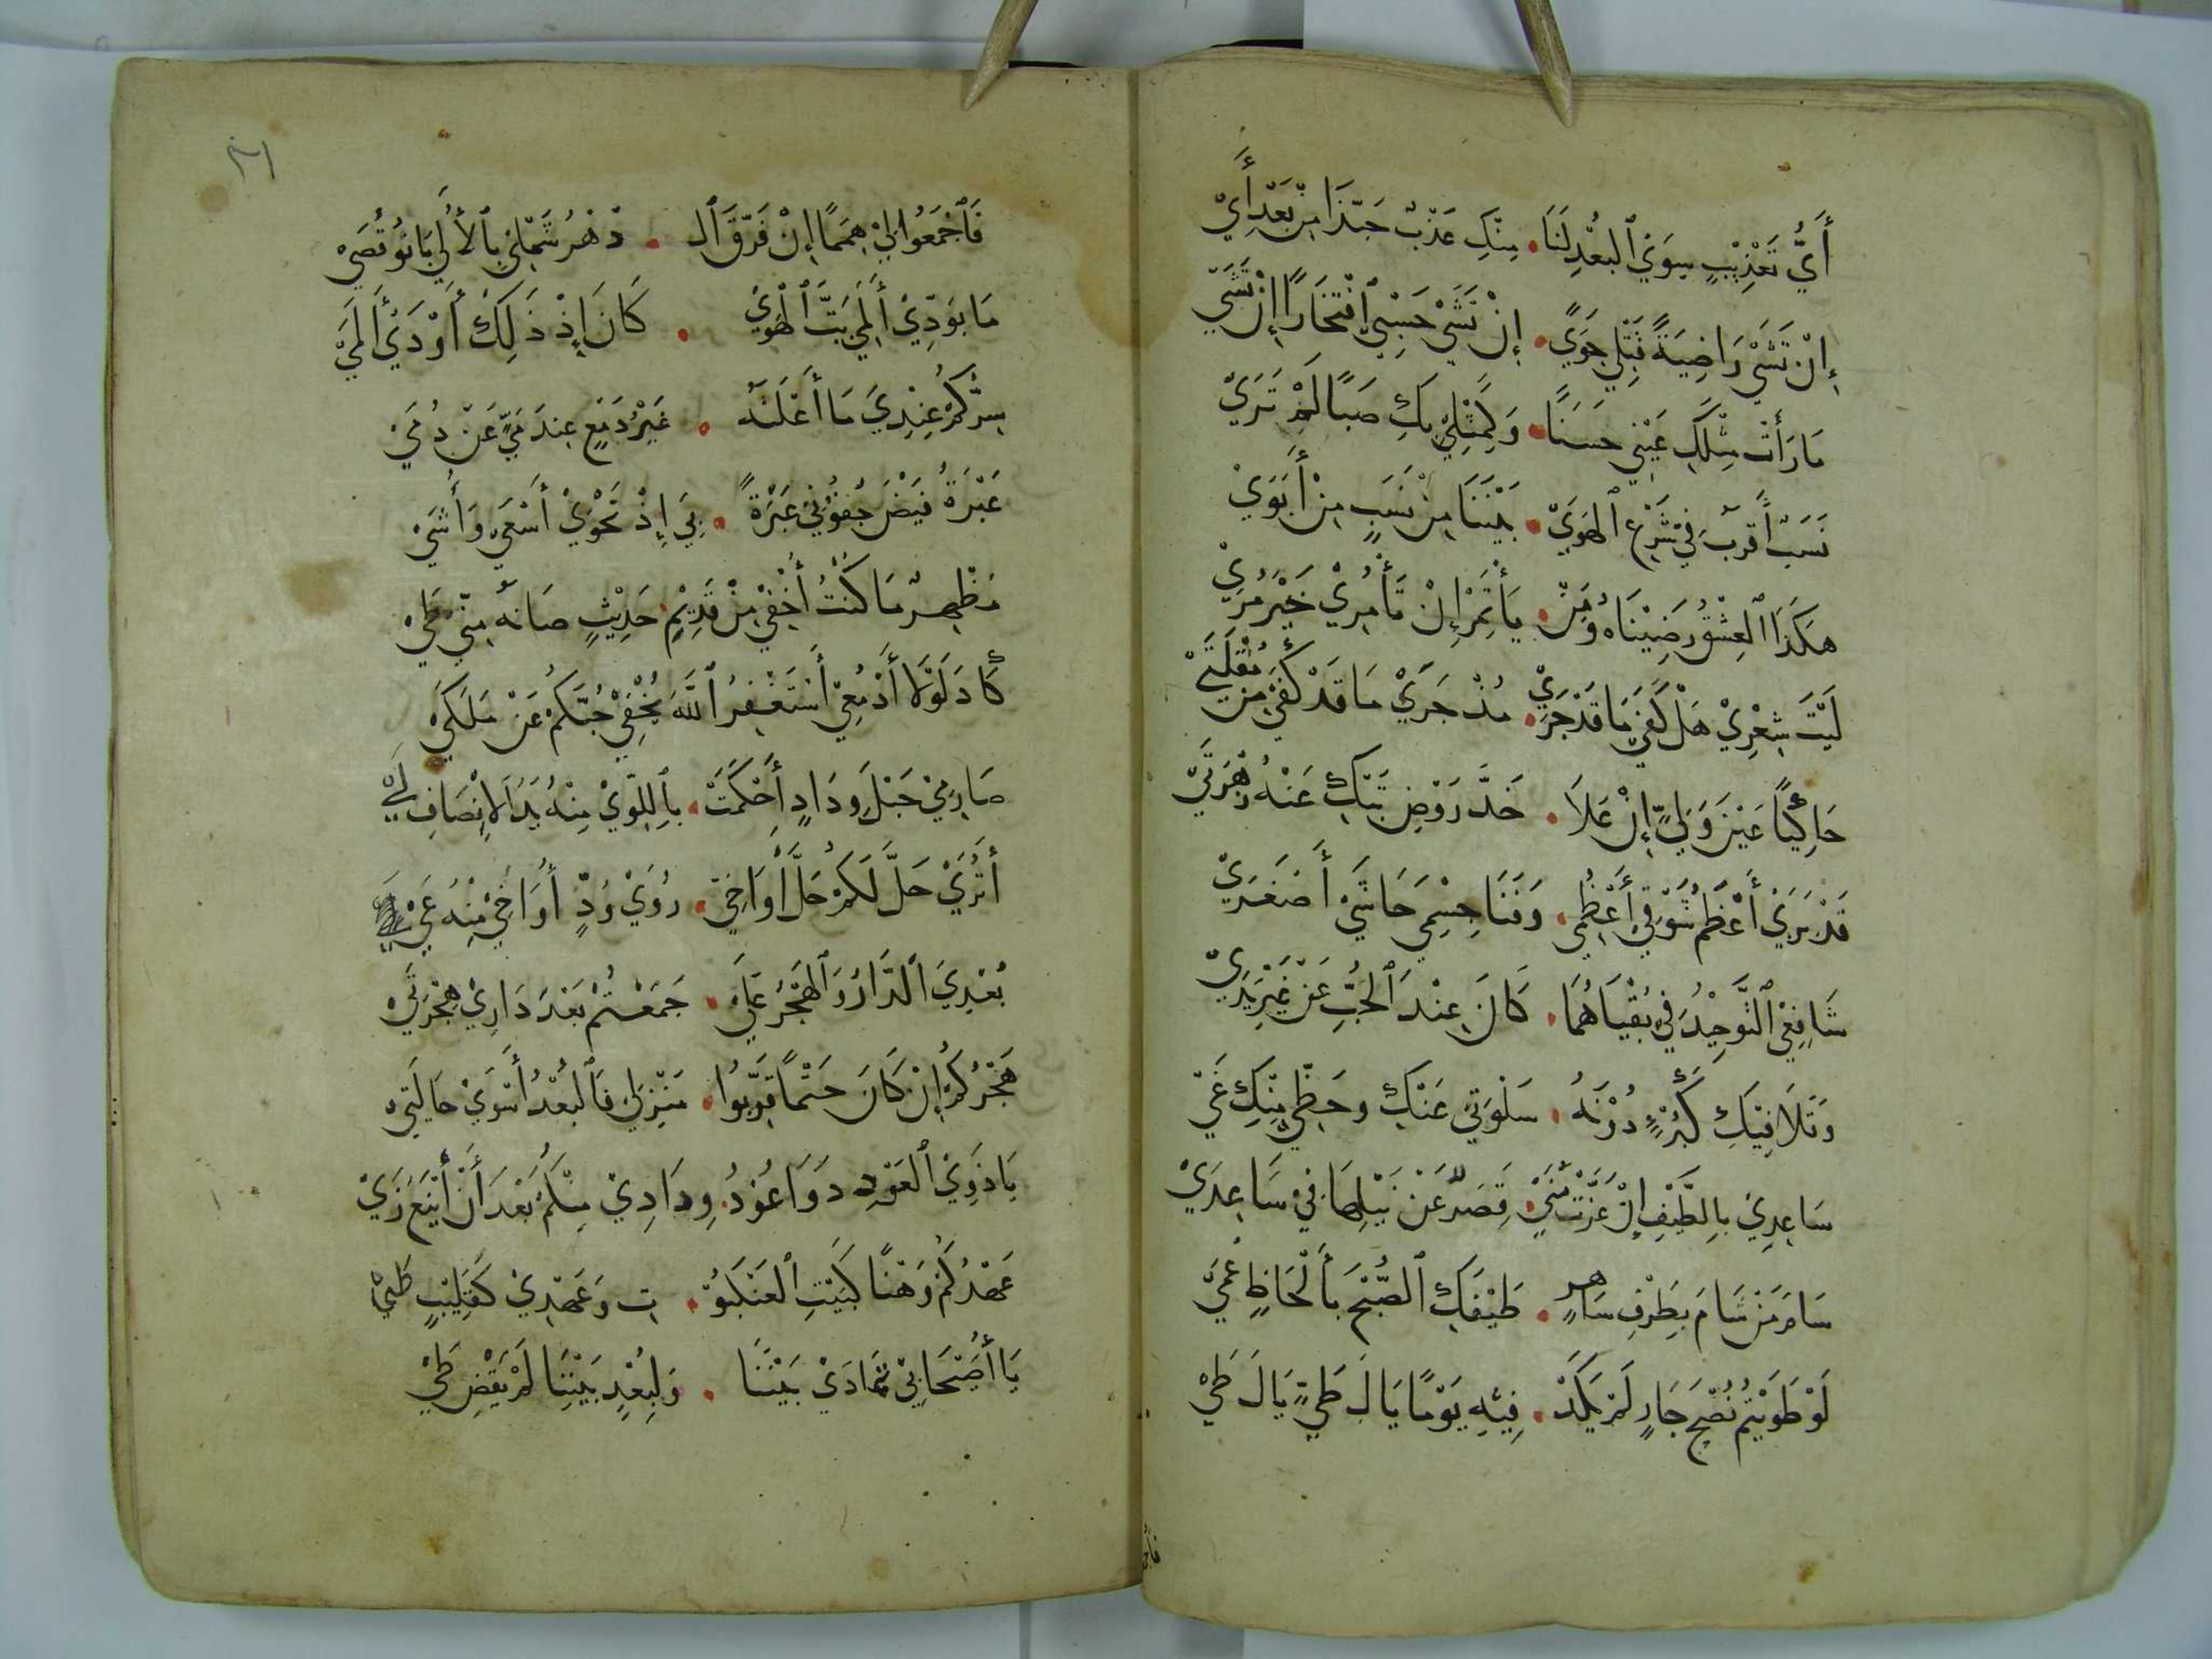 أَيُّ تَعْذِيْبٍ سِوَيْ ٱلبُعْدِ لَنَا . مِنْكِ عَذْبٌ حَبَّذَا مِنْ بَعْدِ أَيْ
إِنْ تَشَيْ رَاضِيَةً قَتْلِي جَوَيً . إِنْ تَشَيْ حَسْبِي ٱفْتِخَارًا إِنْ تَشَيّ
مَا رَأَتْ مِثْلَكِ عَيْنِي حَسَنًا . وَكَمِثْلِيْ بِكِ صَبًا لَمْ تَرَيْ
نَسَبٌ أَقْرَبُ فِيْ شَرْعِ ٱلهَوَيْ . بَيْنَنَا مِنْ نَسَبٍ مِنْ أَبَوَيْ
هكَذَا ٱلعِشْقُ رَضِيْنَاهُ وَمَنْ . يَأْتَمِرْ إِنْ تَأْمُرِيْ خَيْرُ مُرَيْ
لَيْتَ شِعْرِيْ هَلْ كَفَيْ مَا قَدْ جَرَيْ . مُذْ جَرَيْ مَا قَدْ كَفَيْ مِنْ مُقْلَتَيْ
حَاكِيًا عَيْنَ وَلِيٍّ إِنْ عَلَا . خَدَّ رَوْضٍ تَبْكِ عَنْهُ زَهْرَتَيْ
قَدْ بَرَيْ أَعْظَمُ شَوْقِيْ أَعْظُمِي . وَفَنَا جِسْمِيَ حَاشَيْ أَصْغَرَيْ
شَافِعِيْ ٱلتَّوْحِيْدُ فِيْ بُقْيَاهُمَا . كَانَ عِنْدَ ٱلحُبِّ عَنْ غَيْرِ يَدَيْ
وَتَلَافِيْكِ كَبُرْئٍ دُوْنَهُ . سَلْوَتِيْ عَنْكِ وحَظِّيْ مِنْكِ غَيْ
سَاعِدِيْ بِالطَّيْفِ إِنْ عَزَّتْ مُنَيْ . قَِصَرٌ عَنْ نَيْلِهَا فِيْ سَاعِدَيْ
سَامَ مَنْ شَامَ بِطَرْفٍ سَاهِرٍ . طَيْفَكِ ٱلصُّبْحَ بأَلْحَاظٍ عُمَيْ
لَوْ طَوَيْتُمْ نُصْحَ جَارٍ لَمْ يَكَدْ . فِيْهِ يَوْمًا يَالَ طَيٍّ يَالَ طَيْ
فاجمعوا
٢١
فَٱجْمَعُوْا لِيْ هِمَمًا إِنْ فَرَّقَ ٱلـ . دَّهْرُ شَمْلِيْ بِٱلأُلَي بَانُوْ قُصَيْ
مَا بِوَدِّيْ أَلَ مَيٍّ بَثُّ ٱلهَوَيْ . كَانَ إِذْ ذَلِكَ أَوْدَيْ أَلَمَيْ
سِرُّكُمْ عِنْدِيَ مَا أَعْلَنَهُ . غَيْرُ دَمْعٍ عِنْدَمِيٍّ عَنْ دُمَيْ
عَبْرَةُ فَيْضُ جُفُوْنِيْ عَبْرَةً . بِيَ إِذْ تَحْوِيْ أَسْعَيْ وَأَشَيْ
مُظْهِرٌ مَا كُنْتُ أُخْفِيْ مِنْ قَدِيْمٍ . حَدِيْثٍ صَانَهُ مِنِّيَ طَيْ
كَادَ لَوْلَا أَدْمُعِيْ أَسْتَغْفِرُ ٱللَّهَ يُخْفِيْ حُبُّكُمْ عَنْ مَلَكَيْ
صَارِمِيْ حَبْلِ وِدَادٍ أَحْكَمَتْ . بِٱللِّوَيْ مِنْهُ يَدُ ٱلاِنْصَافِ لَيْ
أَتُرَيْ حَلَّ لَكُمْ حَلُّ أَوَاخِيْ . رُوَيْ وُدٍّ أُوَاخِيْ مِنْهُ عَيْ
بُعْدِيَ ٱلدَّارِيُّ وَٱلهَجْرُ عَلَيَّ . جَمَعْتُمْ بَعْدَ دَارِيْ هِجْرَتَيْ
هَجْرُكُمْ إِنْ كَانَ حَتْمًا قَرِّبُوْا . مَنْزِلِيْ فَٱلبُعْدُ أَسْوَيْ حَالَتَيْ
يَا ذَوِيْ ٱلعَوْدِ ذَوَا عُوْدُ . وِدَادِيْ مِنْكُمُ بَعْدَ أَنْ أَيْنَعَ ذَيْ
عَهْدُكُمْ وَهْنًا كَبَيْتِ ٱلعَنْكَبُوْ . تِ وَعَهْدِيْ كَقَلِيْبٍ طَيْ
يَا أُصَيْحَابِيْ تَمَادَيْ بَيْنُنَا . وَلِبُعْدٍ بَيْنَنَا لَمْ يُقْضَ طَيْ